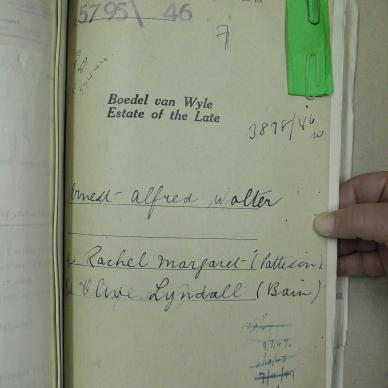 5795\ 46
7
Boedel van Wyle
Estate of the Late
3898/46
Ernest Alfred Walter
Rachel Margaret (Pattison)
Olive Lyndall (Bain)